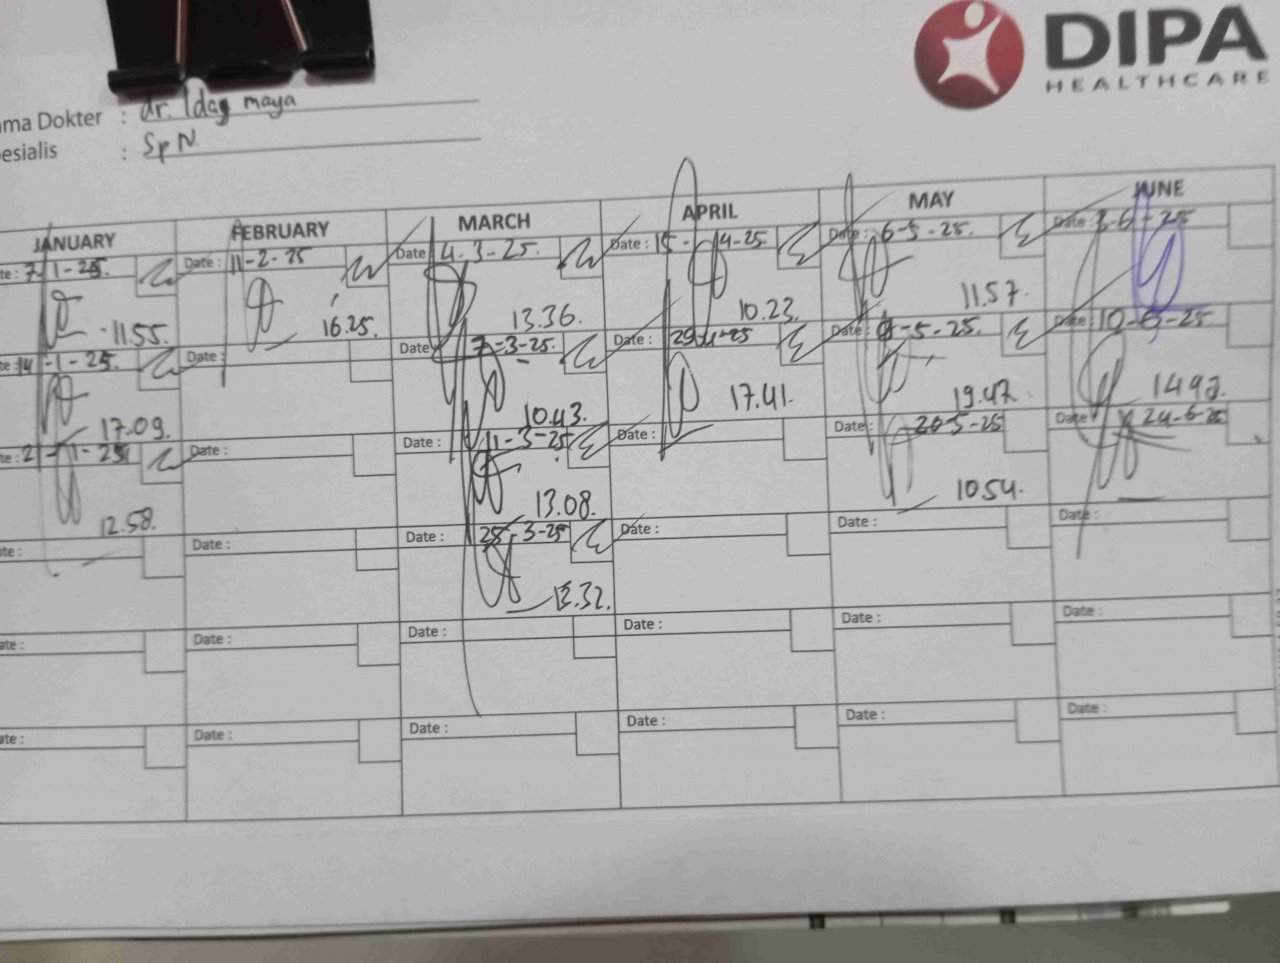 DIPA
HEALTHCARE
ma Dokter : dr. Iday maya
esialis : Sp N.
JANUARY FEBRUARY MARCH APRIL MAY JUNE
te : 7-1-25 Date : 11-2-25 Date 4-3-25. Date : 15-4-25. Date : 6-5-25. Date : 3-6-25
11.55. 16.25. 13.36. 10.23. 11.57.
te : 14-1-25. Date : Date : 7-3-25. Date : 29-4-25 Date : -5-25. Date : 10-6-25
17.09. 10.43. 17.41. 19.47.
te : 21-1-25 Date : Date : 11-3-25 Date : Date : 20-5-25 Date : 24-6-25
12.58. 13.08. 10.54.
te : Date : Date : 25-3-25 Date : Date : Date :
13.32.
te : Date : Date : Date : Date : Date :
te : Date : Date : Date : Date : Date :